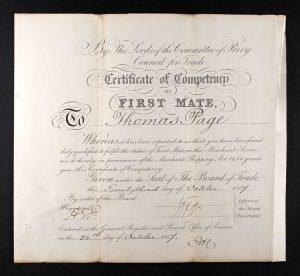 By The Lords of the Committee of Privy
Council for Trade
Certificate of Competency
AS
FIRST MATE,
To Thomas Page
Whereas it has been reported to us that you have been found
duly qualified to fulfil the duties of First Mate in the Merchant Service
we do hereby in pursuance of the Merchant Shipping Act 1854 grant
you this Certificate of Competency
Given under the Seal of The Board of Trade
this day of October
By order of the Board
Registered
Entered at the General Register and Record Office of Seamen
on the 24th day of October